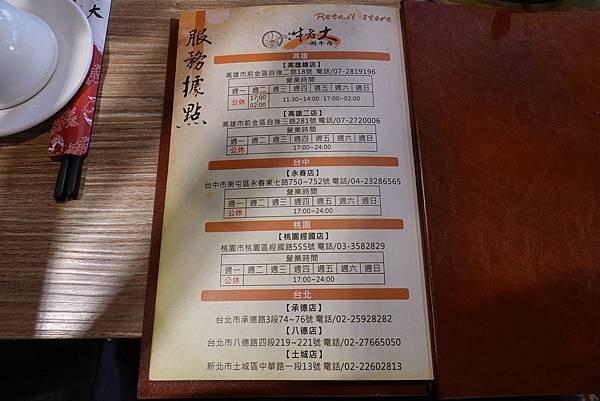 大
服務據點
Retail store
牛老大
涮牛肉
高雄
【高雄總店】
高雄市前金區自強二路18號 電話/07-2819196
營業時間
週一 週二 週三 週四 週五 週六 週日
公休 17:00 02:00 11:30~14:00 17:00~02:00
【高雄二店】
高雄市前金區自強三路281號 電話/07-2720006
營業時間
週一 週二 週三 週四 週五 週六 週日
公休 17:00~24:00
台中
【永春店】
台中市南屯區永春東七路750~752號 電話/04-23286565
營業時間
週一 週二 週三 週四 週五 週六 週日
公休 17:00~24:00
桃園
【桃園經國店】
桃園市桃園區經國路555號 電話/03-3582829
營業時間
週一 週二 週三 週四 週五 週六 週日
公休 17:00~24:00
台北
【承德店】
台北市承德路3段74~76號 電話/02-25928282
【八德店】
台北市八德路四段219~221號 電話/02-27665050
【土城店】
新北市土城區中華路一段13號 電話/02-22602813